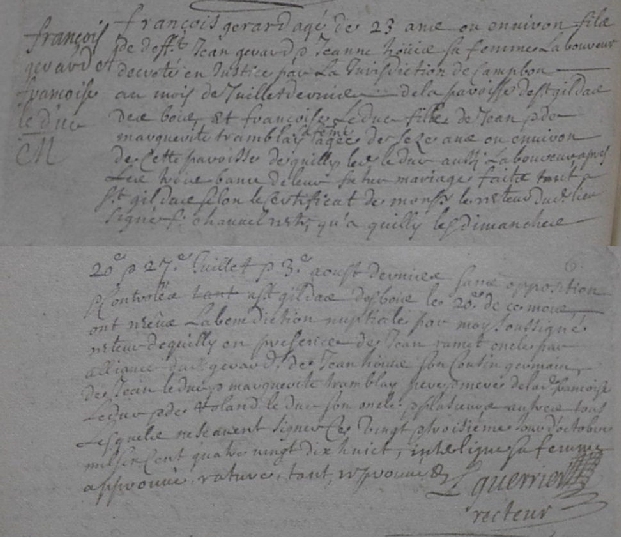 françois
gerard et
françoise
le duc
CM
françois gerard agé de 23 ans ou environ fils
de deff.t Jean gerard & Jeanne houïe sa femme Laboureur
decreté en Justice par La Jurisdiction de Campbon
au mois de Juillet dernier de la paroisse de st gildas
des bois, Et françoise Leduc fille de Jean & de
marguerite tramblay sa femme agée de seze ans ou environ
de cette paroisse de quilly led. le duc aussi Laboureur apres
Les trois bans de leur futur mariage faits tant
st gildas selon le certificat de monsr le recteur dud. lieu
signé qu'a quilly les dimanches
20.e & 27.e Juillet & 3.e aoust dernier sans opposition
& controllés tant a st gildas des bois les 20.e de ce mois
ont receu La benediction nuptiale par moy soussigné
recteur de quilly en presence de Jean oncle par
alliance dud. gerard, de Jean houïe son Cousin germain
de Jean leduc & marguerite tramblay pere & mere de lad. françoise
Leduc & de Roland le duc son oncle & plusieurs autres tous
Lesquels ne scavent signer Ces vingt & troisième Jour d'octobre
mil six Cent quatre vingt dix huict, interligne sa femme
approuvé, rature, tant, reprouvé &
L guerrier
recteur